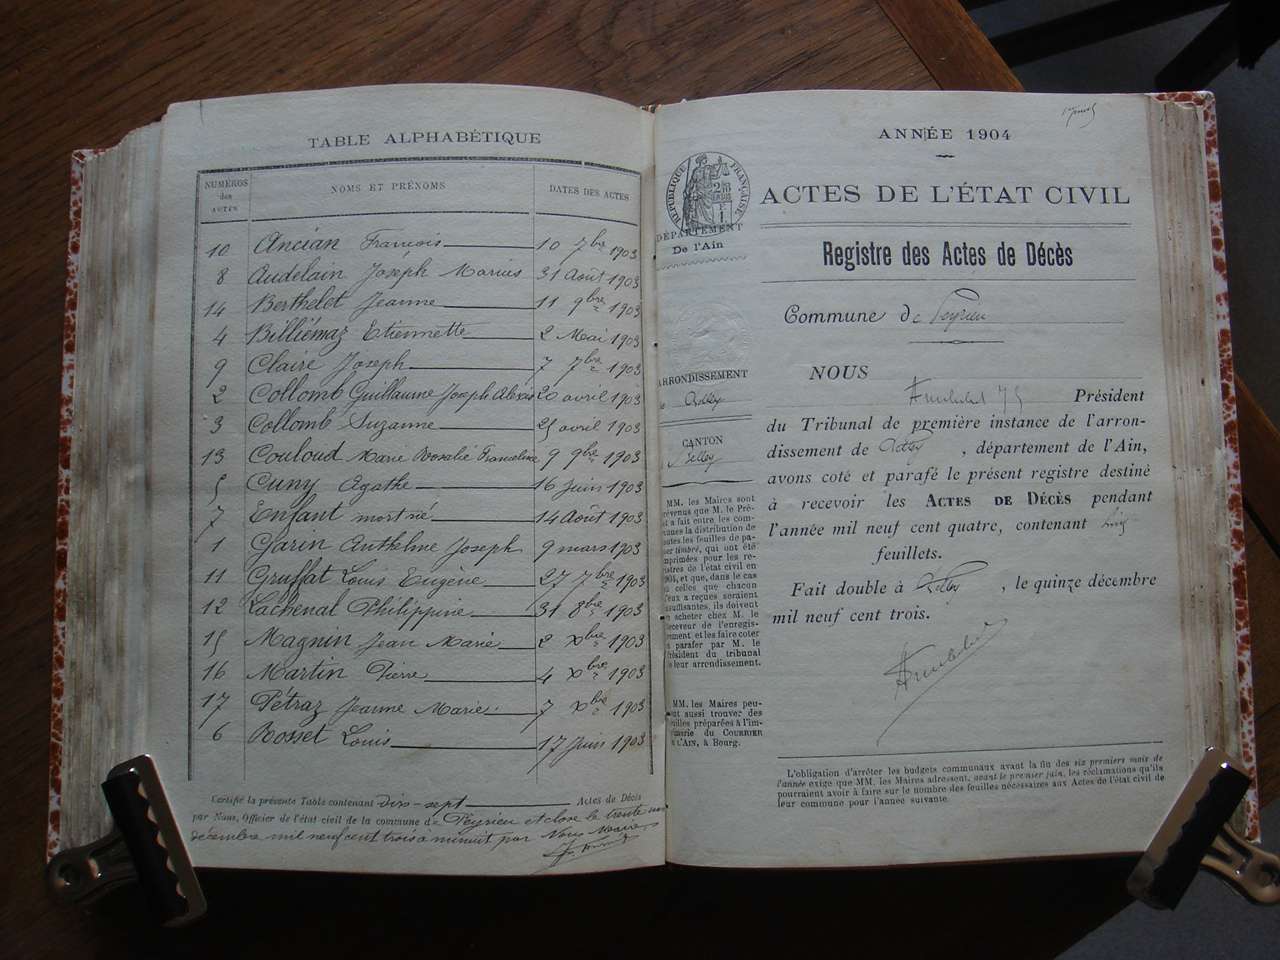 TABLE ALPHABÉTIQUE
NUMÉROS des ACTES
NOMS ET PRÉNOMS
DATES DES ACTES
10 Ancian François 10 7bre 1903
8 Audelain Joseph Marius 31 Août 1903
14 Berthelet Jeanne 11 9bre 1903
4 Billiémaz Etiennette 2 Mai 1903
9 Claire Joseph 7 7bre 1903
2 Collomb Guillaume Joseph Alexis 20 avril 1903
3 Collomb Suzanne 25 avril 1903
13 Couloud Marie Rosalie Franceline 9 9bre 1903
5 Cuny Agathe 16 Juin 1903
7 Enfant mort né 14 Août 1903
1 Garin Anthelme Joseph 9 mars 1903
11 Gruffat Louis Eugène 27 7bre 1903
12 Lachenal Philippine 31 8bre 1903
15 Magnin Jean Marie 2 Xbre 1903
16 Martin Pierre 4 Xbre 1903
17 Pétraz Jeanne Marie 7 Xbre 1903
6 Rosset Louis 17 Juin 1903
Certifié la présente Table contenant dix-sept Actes de Décès
par Nous, Officier de l'état civil de la commune de Peyrieu et close le trente un
décembre mil neuf cent trois à minuit par Nous Maire
ANNÉE 1904
RÉPUBLIQUE FRANÇAISE
ACTES DE L'ÉTAT CIVIL
DÉPARTEMENT
De l'Ain
Registre des Actes de Décès
Commune de Peyrieu
ARRONDISSEMENT
Belley
CANTON
Belley
NOUS
Président
du Tribunal de première instance de l'arron-
dissement de Belley, département de l'Ain,
avons coté et parafé le présent registre destiné
à recevoir les ACTES DE DÉCÈS pendant
l'année mil neuf cent quatre, contenant
feuillets.
Fait double à Belley, le quinze décembre
mil neuf cent trois.
MM. les Maires sont
prévenus que M. le Pré-
et a fait entre les com-
munes la distribution de
toutes les feuilles de pa-
pier timbré, qui ont été
imprimées pour les re-
gistres de l'état civil en
1904, et que, dans le cas
où celles que chacun
d'eux a reçues seraient
insuffisantes, ils doivent
en acheter chez M. le
Receveur de l'enregis-
trement et les faire coter
et parafer par M. le
Président du tribunal
de leur arrondissement.
MM. les Maires peu-
vent aussi trouver des
feuilles préparées à l'im-
primerie du COURRIER
DE L'AIN, à Bourg.
L'obligation d'arrêter les budgets communaux avant la fin des six premiers mois de
l'année exige que MM. les Maires adressent, avant le premier juin, les réclamations qu'ils
pourraient avoir à faire sur le nombre des feuilles nécessaires aux Actes de l'état civil de
leur commune pour l'année suivante.